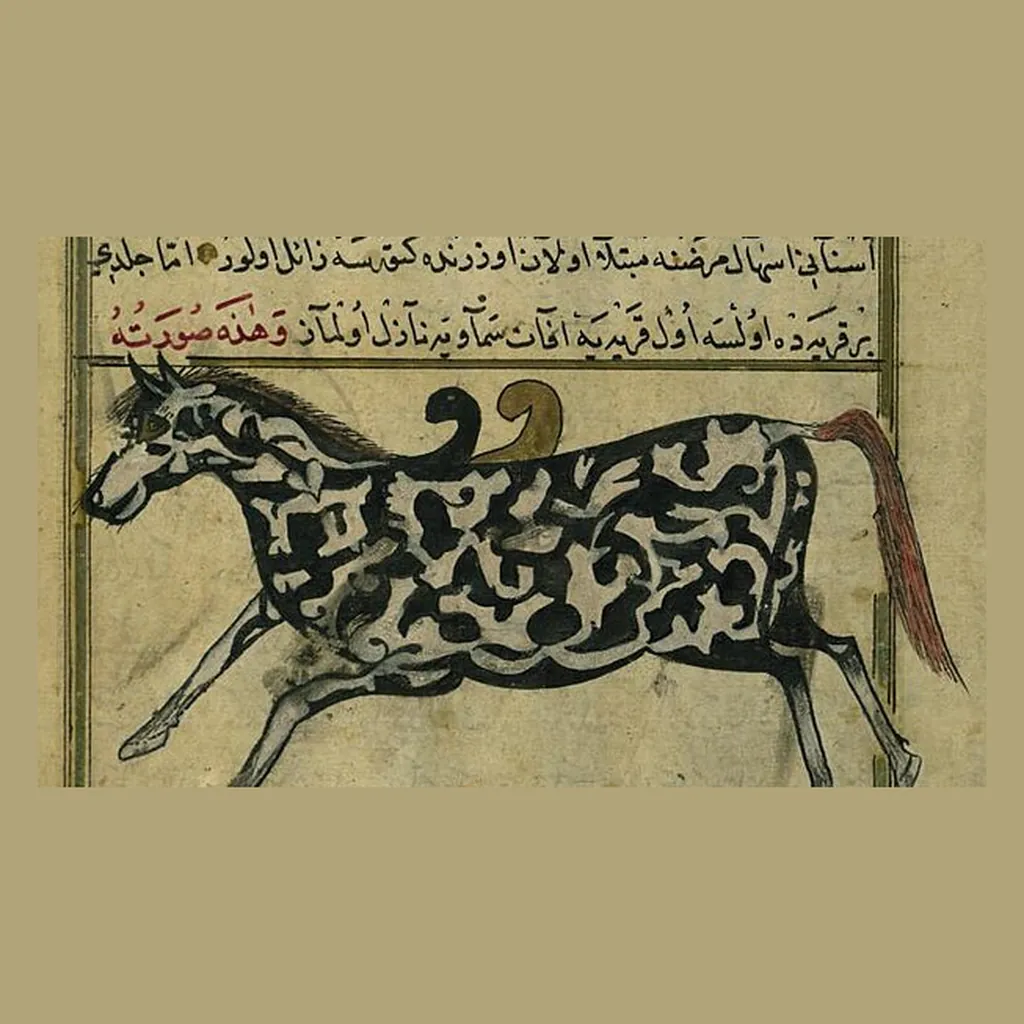 اسنانی اسهال مرضنه مبتلا اولان اوزرنده کتورسه زائل اولور اما جلدی
بر قریه‌ده اولسه اول قریه‌یه افات سماویه نازل اولماز وَهٰذِهٖ صُورَتُهُ